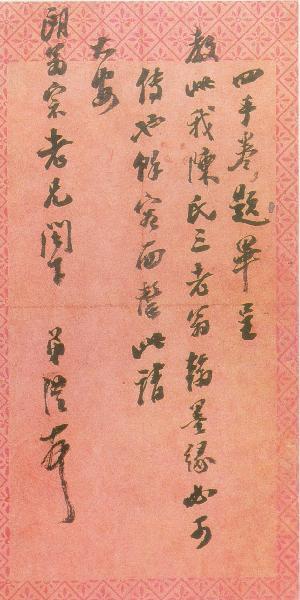 四手卷題畢呈
教此我陳氏三老翁翰墨緣必可
傳也餘容面罄此請
大安
宗老兄閣下 弟澧